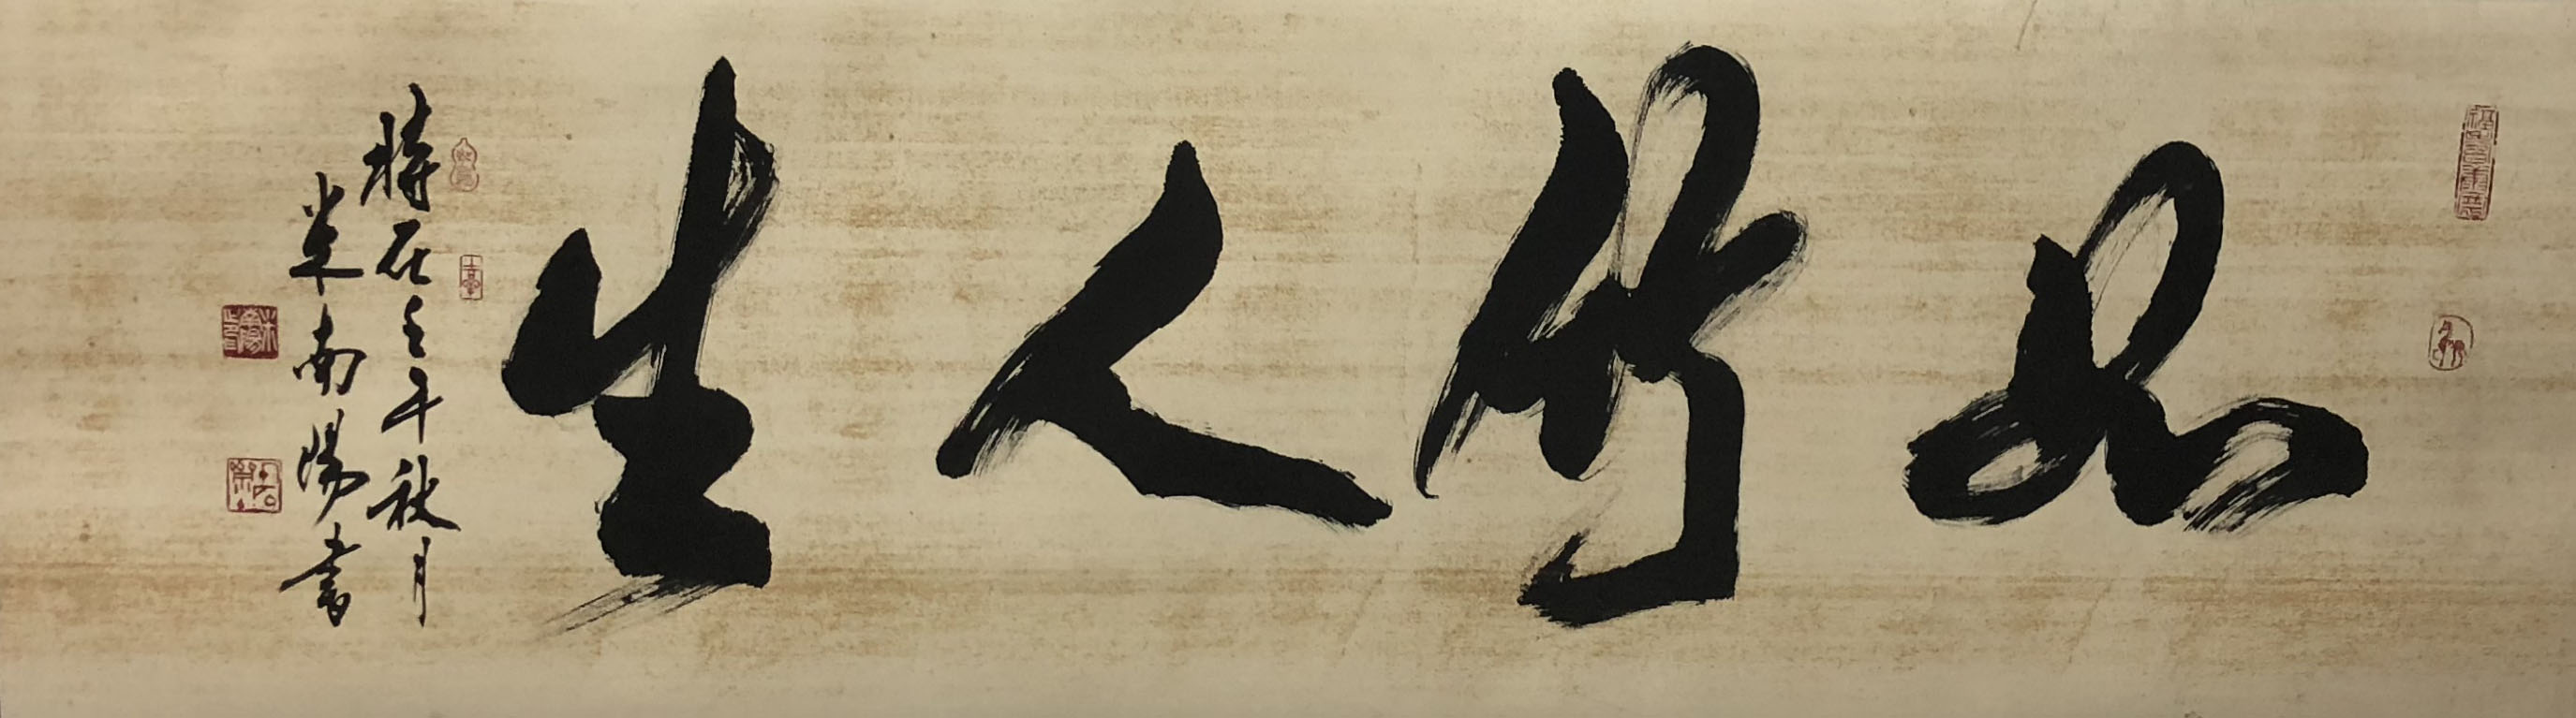 如竹人生
時在壬午秋月
南陽書